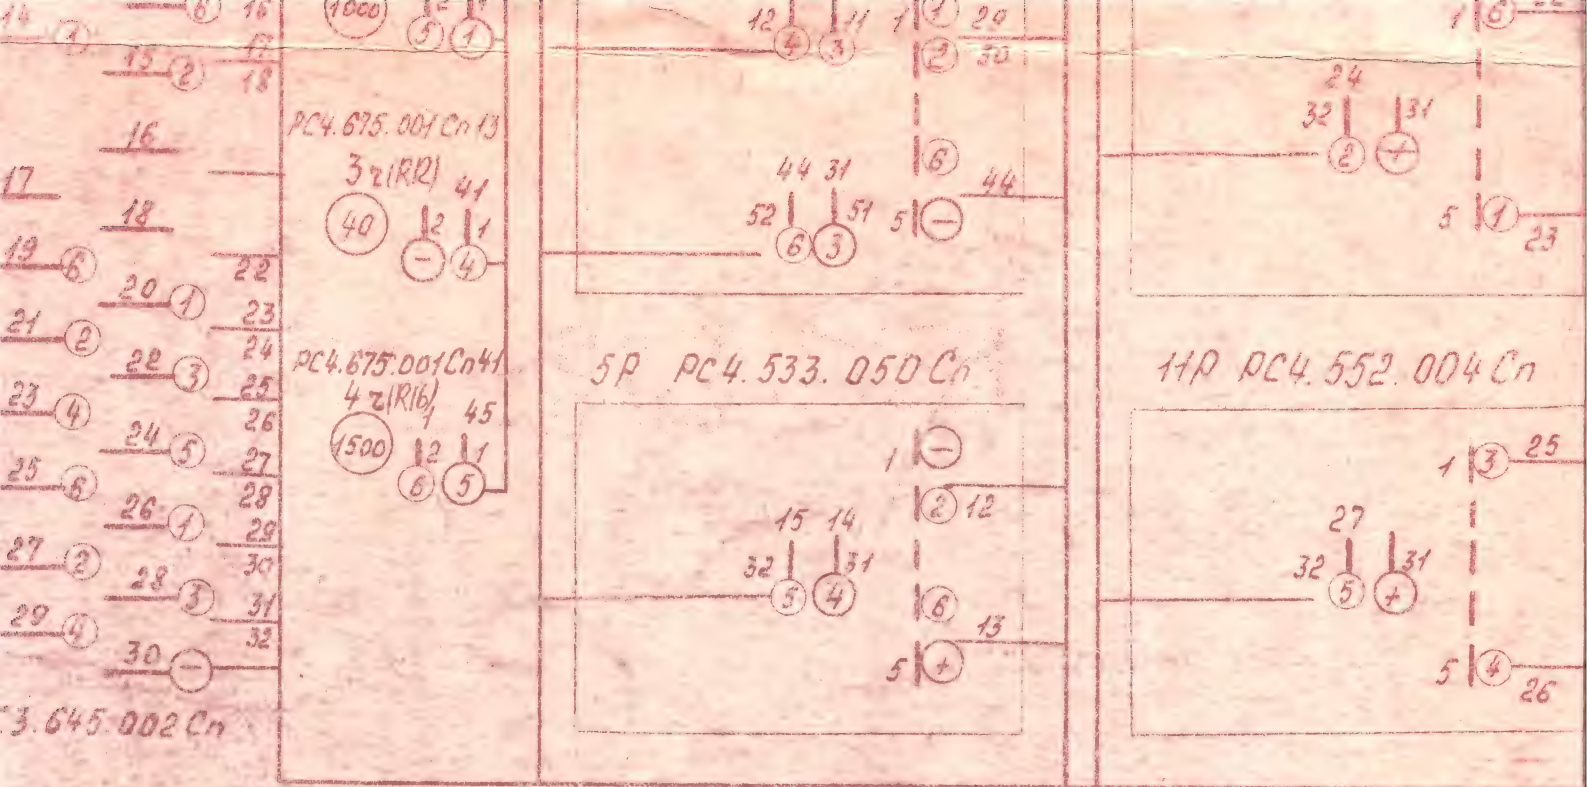 14 1
6 16
15 2
17
18
16
17
18
19 6
22
20 1
21 2
23
22 3
24
23 4
25
24 5
26
25 6
27
26 1
28
27 2
29
28 3
30
29 4
31
30 −
32
3.645.002 Сп
1000
5 1
РС4.675.001 Сп 13
3 г(RR)
41
40 2 1
− 4
РС4.675.001 Сп 41
4 г(R16)
1 45
1500 2 1
6 5
12 11
4 3
1 1 29
2 30
6
44 31
44
52 51
6 3
5 −
5Р РС4.533.050 Сп
1 −
2 12
15 14
32 31
5 4
6
13
5 +
1 6
24
32 31
2 +
5 1
23
11Р РС4.552.004 Сп
1 3 25
27
32 31
5 +
5 4
26